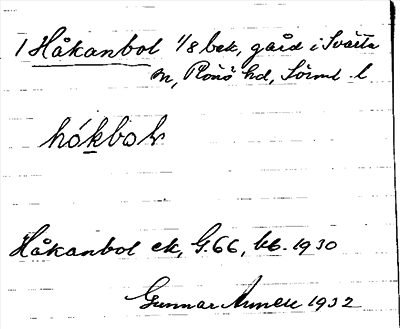 1 Håkanbol 1/8 bek, gård i Svärta
sn, Rönö hd, Sörml. l
hókbo
Håkanbol ek, G. 66, bb. 1930
Gunnar 1932